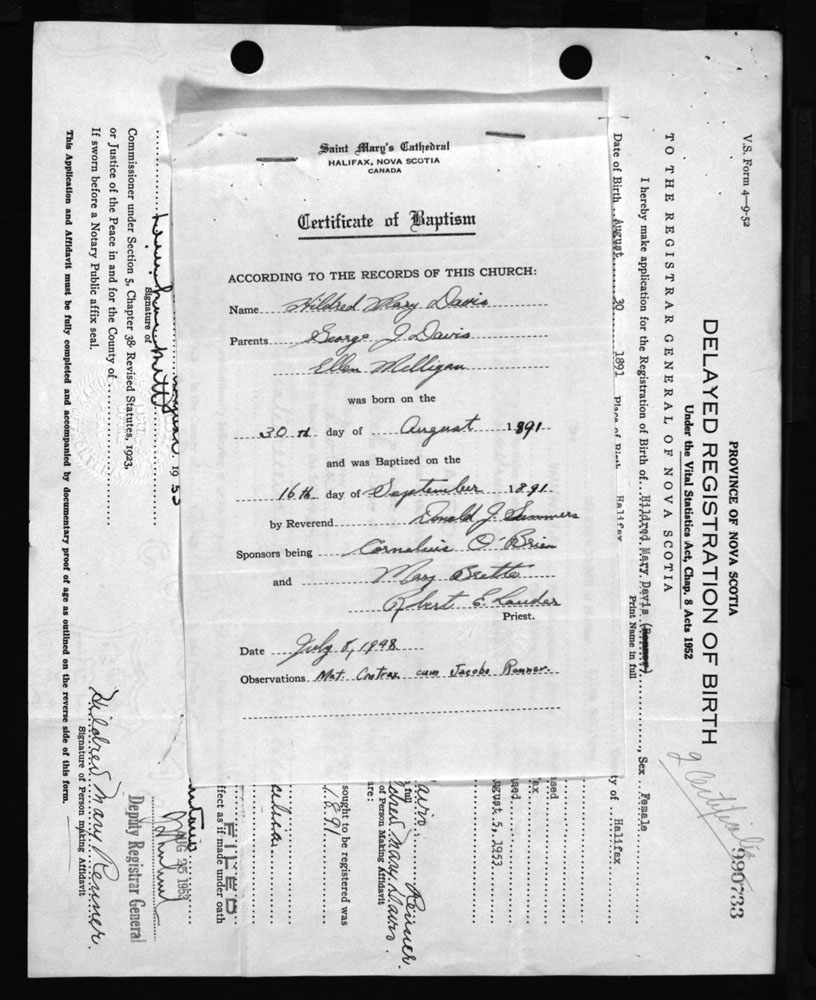 Saint Mary's Cathedral
HALIFAX, NOVA SCOTIA
CANADA
Certificate of Baptism
ACCORDING TO THE RECORDS OF THIS CHURCH:
Name Hildred Mary Davis
Parents George J Davis
Ellen Milligan
was born on the
30th day of August 1891
and was Baptized on the
16th day of September 1891
by Reverend Donald J. Summers
Sponsors being Cornelius O'Brien
and Mary Brette
Robert E. Lauder
Priest.
Date July 8, 1948
Observations Mat. Contrax cum Jacobo Renner.
V.S. Form 4-9-52
PROVINCE OF NOVA SCOTIA
DELAYED REGISTRATION OF BIRTH
Under the Vital Statistics Act, Chap. 8 Acts 1952
2 certificates
990733
TO THE REGISTRAR GENERAL OF NOVA SCOTIA
I hereby make application for the Registration of Birth of Hildred Mary Davis (Renner), Sex Female
Print Name in full
Date of Birth August 30 1891 Place of Birth Halifax County of Halifax
ugust 5, 1953
are:
full
of Person Making Affidavit
Renner.
dred Mary Davis.
sought to be registered was
1891
ffect as if made under oath
FILED
AUG 25 1953
Deputy Registrar General
1953
Signature of
Commissioner under Section 5, Chapter 38 Revised Statutes, 1923,
or Justice of the Peace in and for the County of
If sworn before a Notary Public affix seal.
Hildred Mary Renner.
Signature of Person making Affidavit
This Application and Affidavit must be fully completed and accompanied by documentary proof of age as outlined on the reverse side of this form.